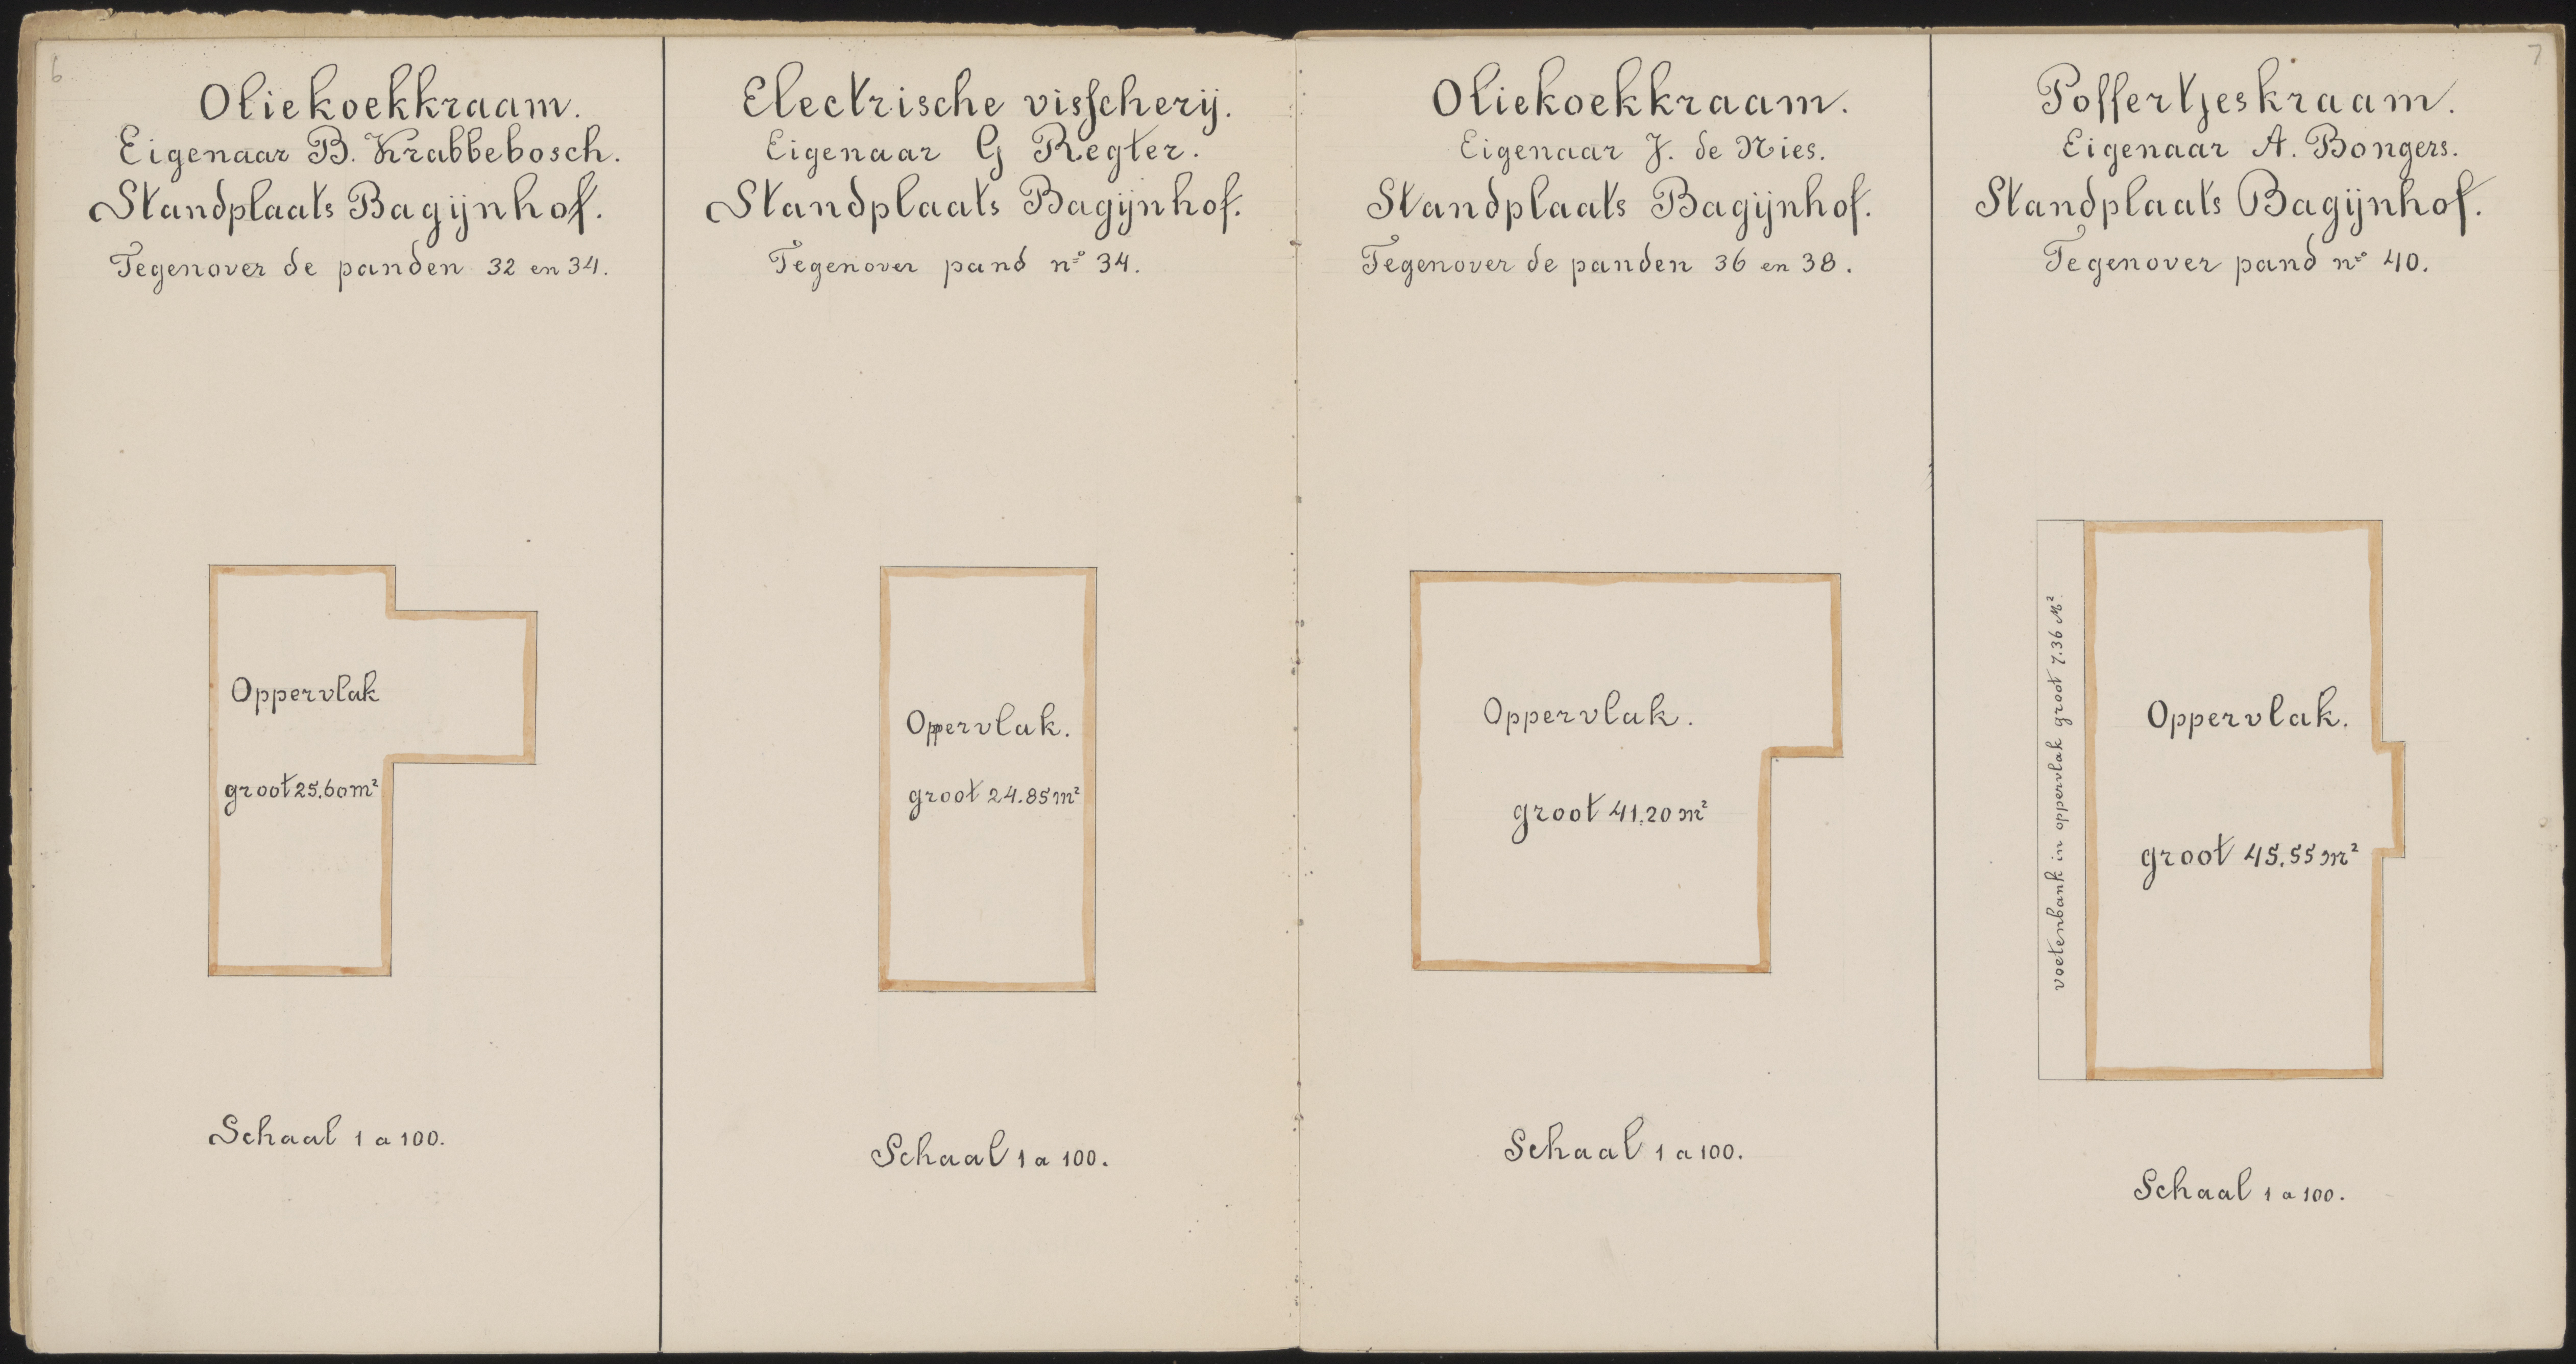 6
Oliekoekkraam.
Eigenaar B. Krabbebosch.
Standplaats Bagijnhof.
Tegenover de panden 32 en 34.
Oppervlak
groot 25.60 m²
Schaal 1 a 100.
Electrische visscherij.
Eigenaar G Regter.
Standplaats Bagijnhof.
Tegenover pand nº 34.
Oppervlak.
groot 24.85 m²
Schaal 1 a 100.
Oliekoekkraam.
Eigenaar J. de Nies.
Standplaats Bagijnhof.
Tegenover de panden 36 en 38.
Oppervlak.
groot 41.20 m²
Schaal 1 a 100.
7
Poffertjeskraam.
Eigenaar A. Bongers.
Standplaats Bagijnhof.
Tegenover pand nº 40.
voetenbank in oppervlak groot 7.36 M²
Oppervlak.
groot 45.55 m²
Schaal 1 a 100.